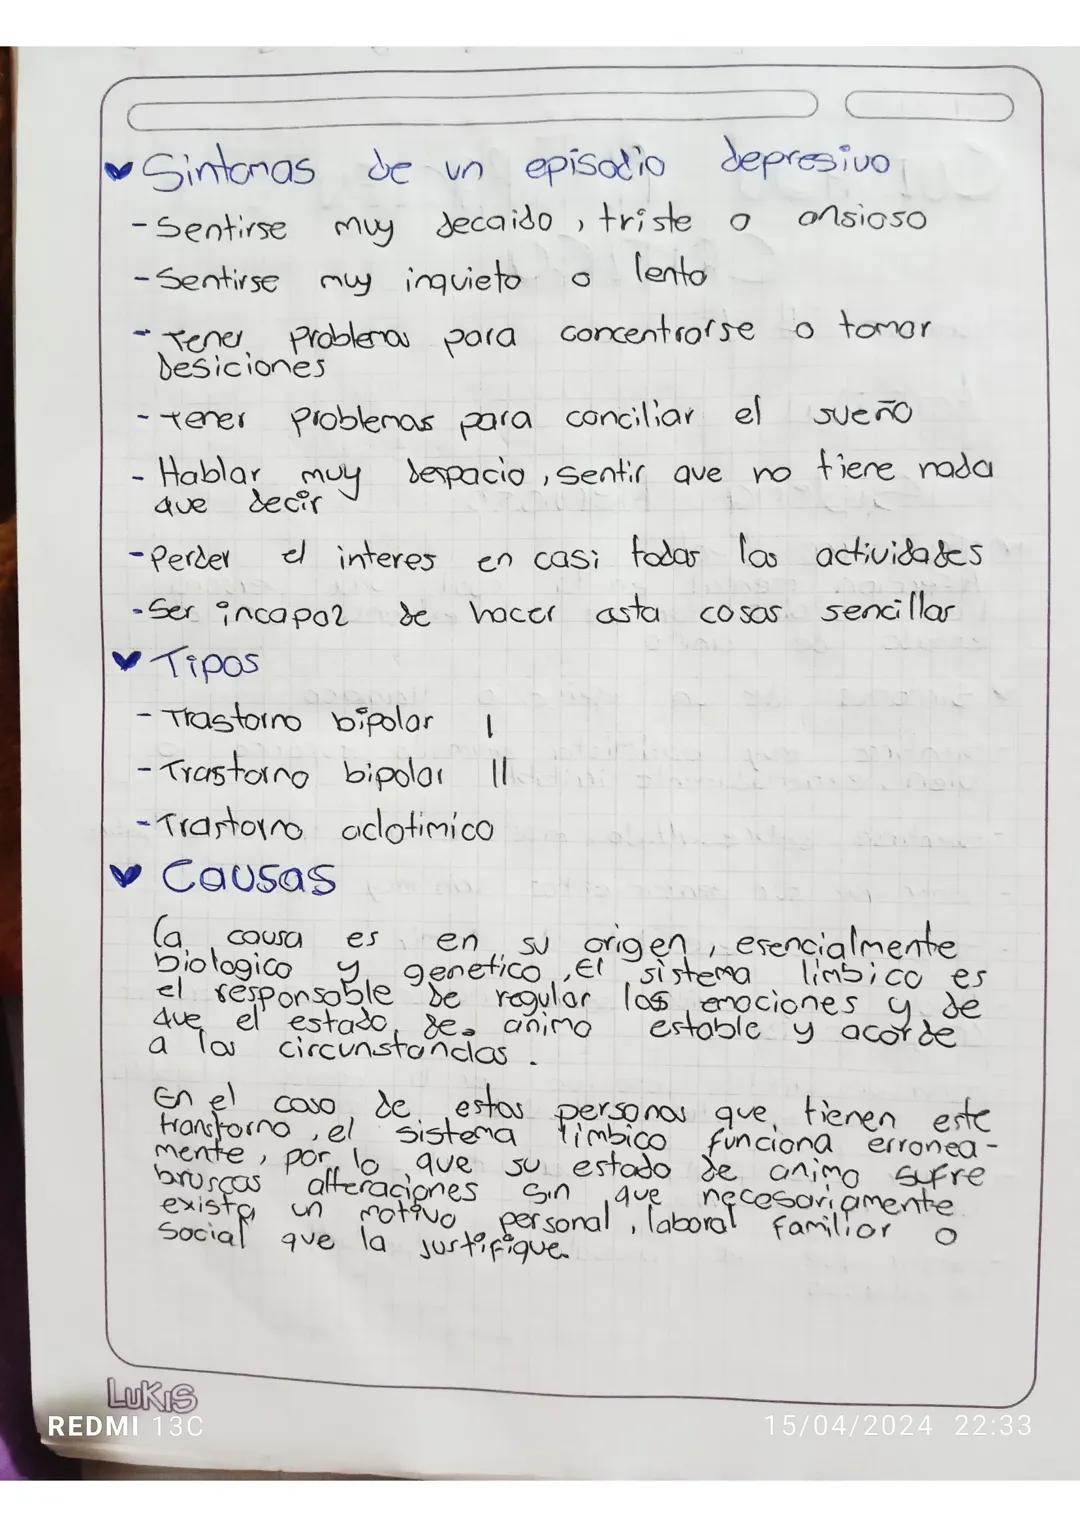 Sintomas de un episodio depresivo
- Sentirse muy decaido, triste o ansioso
- Sentirse muy inquieto o lento
- Tener problemas para concentrarse o tomar
Desiciones
- Tener problemas para conciliar el sueño
- Hablar muy despacio, sentir que no tiene nada
que decir
- Perder el interes en casi todas las actividades
- Ser incapaz de hacer asta cosas sencillas
Tipos
- Trastorno bipolar I
- Trastorno bipolar II
- Trastorno ciclotimico
Causas
La causa es en su origen, esencialmente
biologico y genetico, El sistema limbico es
el responsable de regular las emociones y de
que el estado de animo estable y acorde
a las circunstancias.
En el caso de estas personas que tienen este
transtorno, el sistema limbico funciona erronea-
mente, por lo que su estado de animo sufre
bruscas alteraciones sin que necesariamente
exista un motivo personal, laboral familiar o
social que la justifique.
LUKIS
REDMI 13C
15/04/2024 22:33